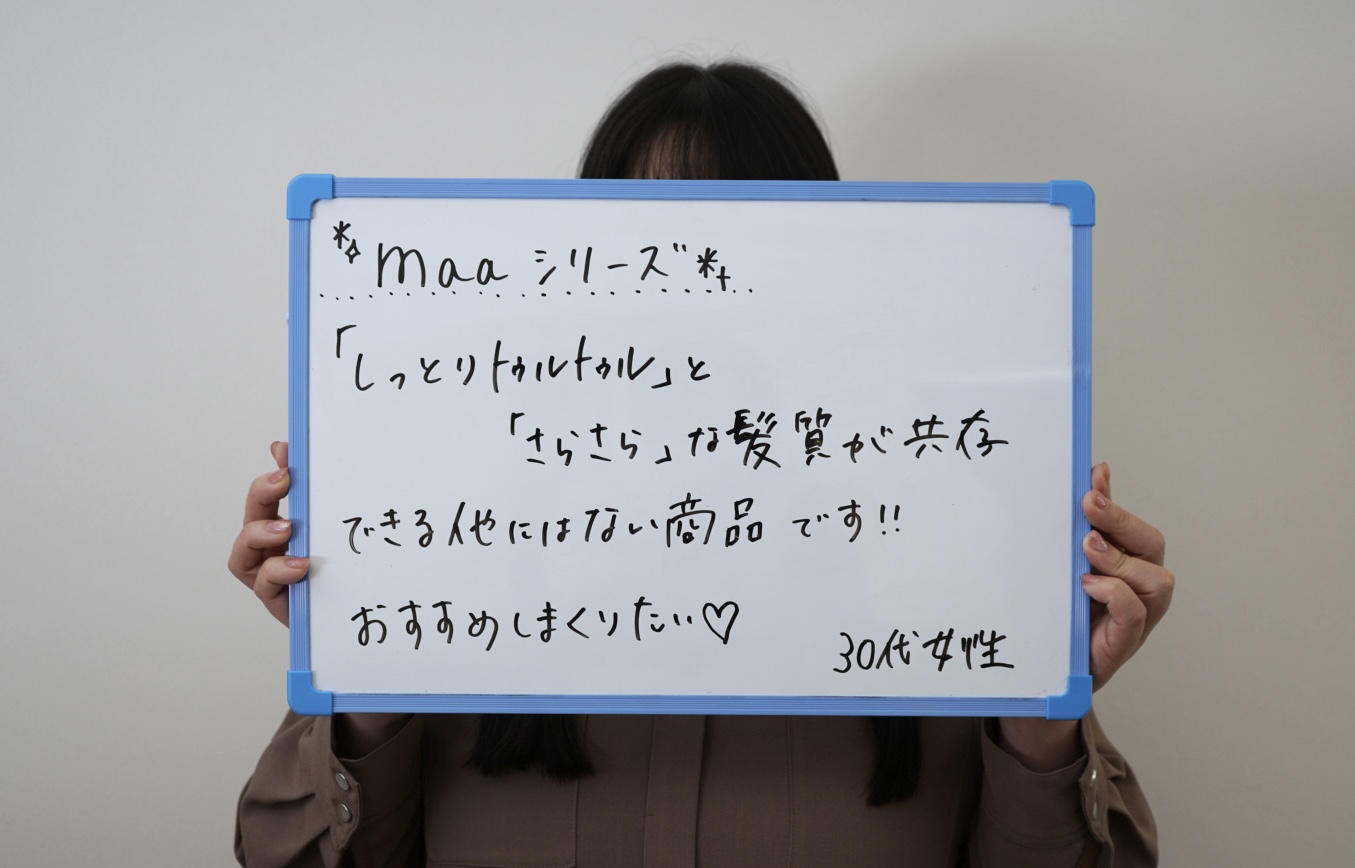 maa シリーズ
「しっとりトゥルトゥル」と
「さらさら」な髪質が共存
できる他にはない商品です!!
おすすめしまくりたい♡
30代女性